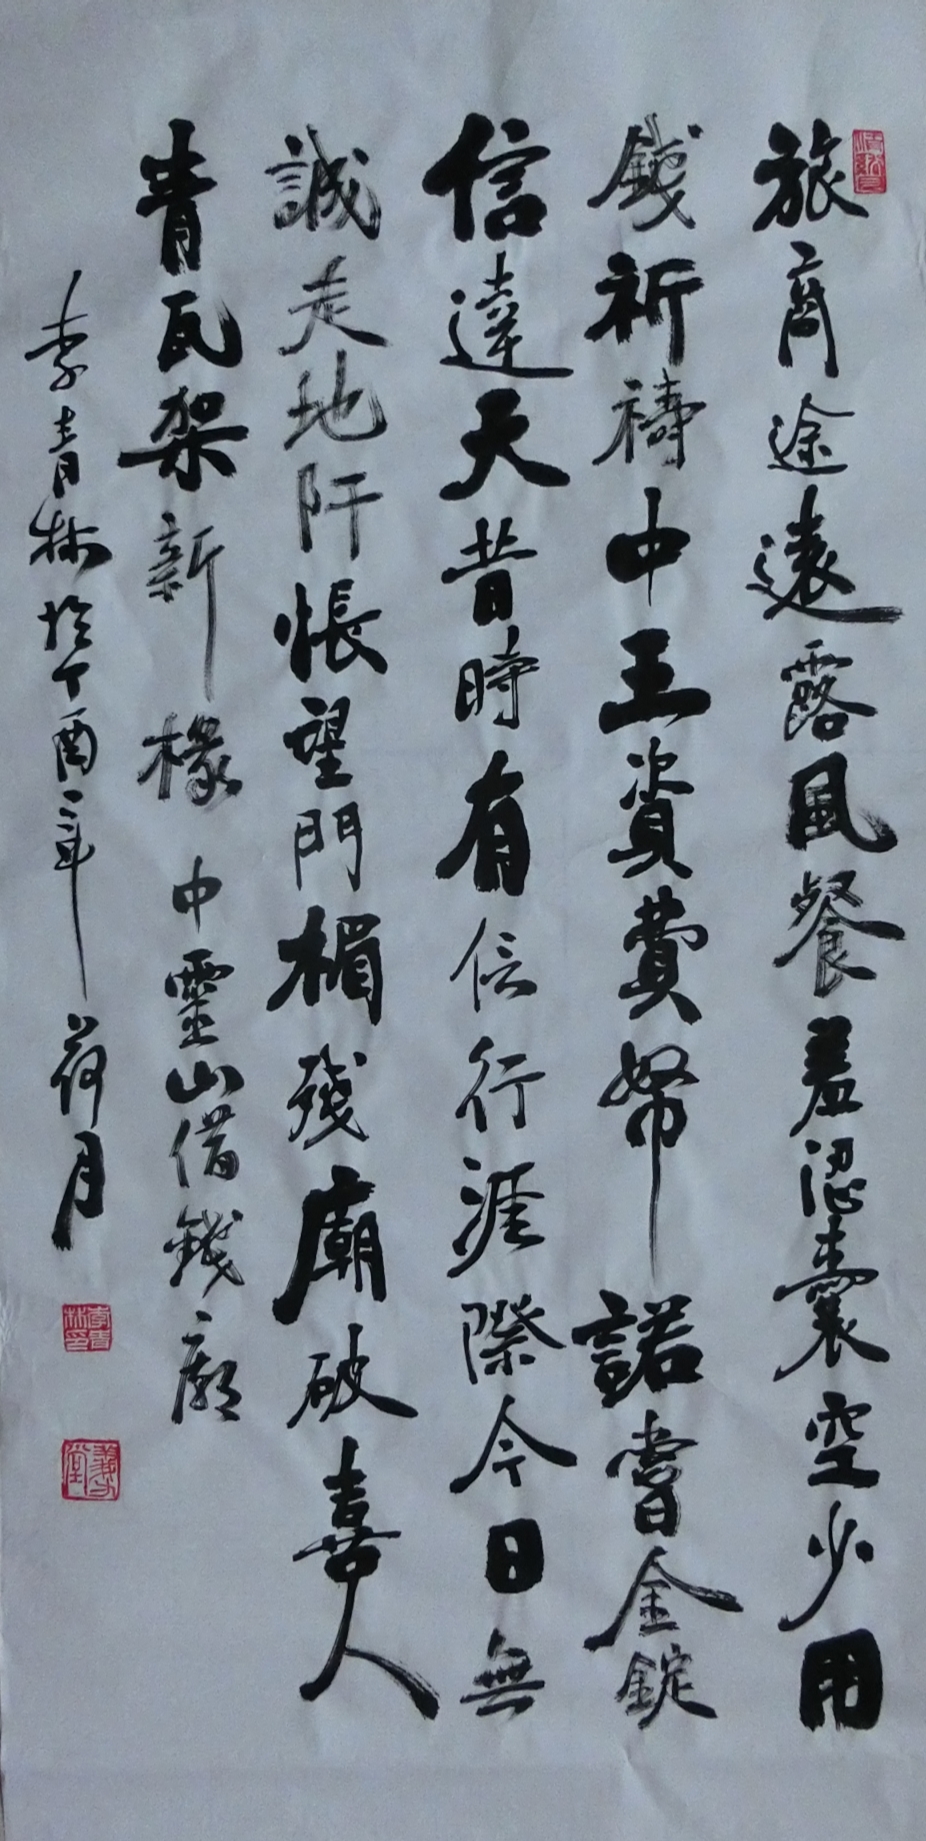 旅商途遠露風餐羞認囊空少用
錢祈禱中王資費幣諾嘗金錠
信達天昔時有信行涯際今日無
誠走地阡悵望門楣殘廟破喜人
青瓦架新椽 中靈山借錢廟
李青林於丁酉年荷月
李青林印